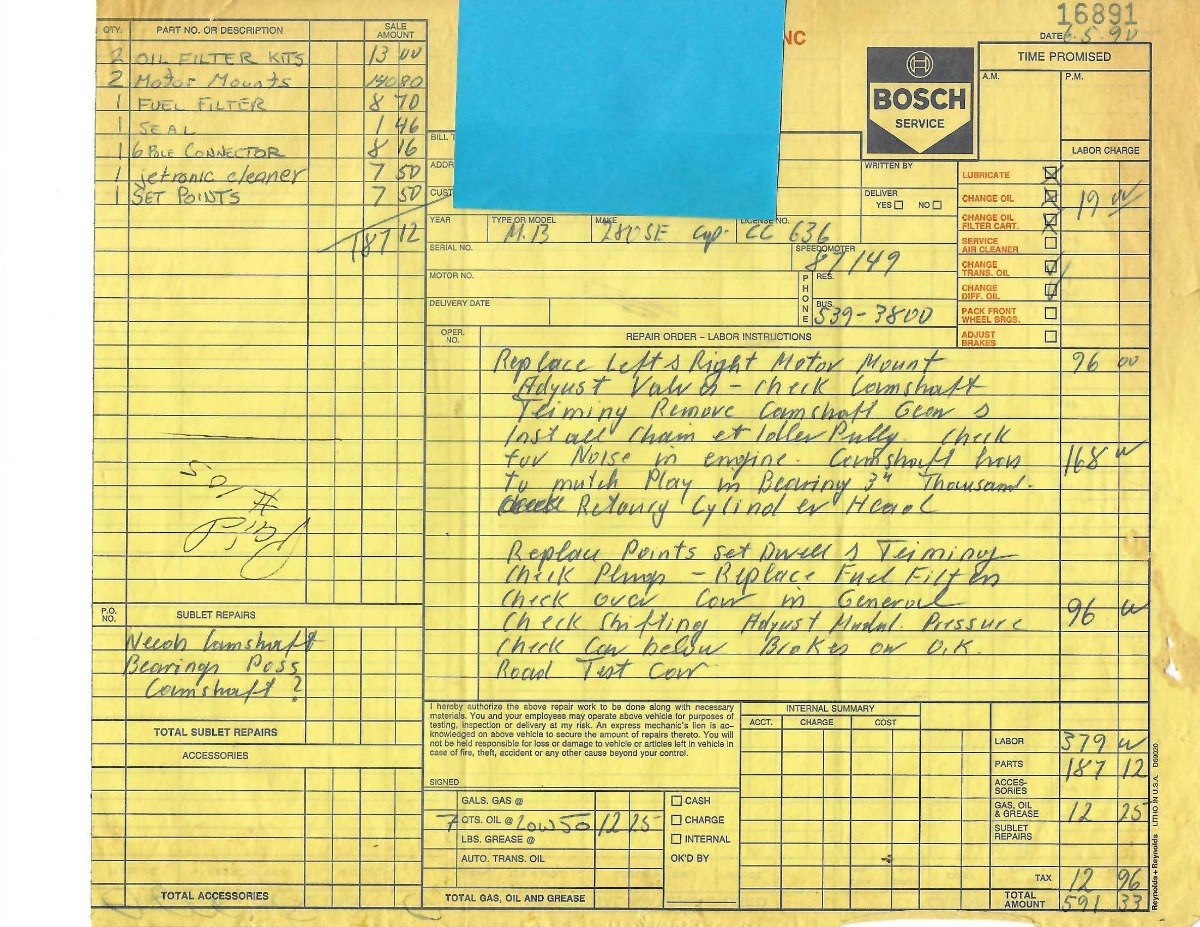 16891
NC
DATE 6.5.90
QTY. PART NO. OR DESCRIPTION SALE AMOUNT
2 OIL FILTER KITS 13 00
2 Motor Mounts 140 80
1 FUEL FILTER 8 70
1 SEAL 1 46
1 6 Pole Connector 8 16
1 jetronic cleaner 7 50
1 SET POINTS 7 50
187 12
BOSCH
SERVICE
TIME PROMISED
A.M. P.M.
LABOR CHARGE
BILL T
ADDR
CUST
WRITTEN BY
DELIVER
YES NO
LUBRICATE
CHANGE OIL 19 00
CHANGE OIL FILTER CART.
SERVICE AIR CLEANER
CHANGE TRANS. OIL
CHANGE DIFF. OIL
PACK FRONT WHEEL BRGS.
ADJUST BRAKES
YEAR TYPE OR MODEL MAKE LICENSE NO.
M.B 280SE cup. CC 636
SERIAL NO. SPEEDOMETER
87149
MOTOR NO. PHONE RES.
DELIVERY DATE BUS. 539-3800
OPER. NO. REPAIR ORDER – LABOR INSTRUCTIONS
Replace Left & Right Motor Mount 96 00
Adjust Valves – check Camshaft
Teiming Remove Camshaft Gear &
Install Chain et Idler Pully. Check
for Noise in engine. Camshaft has 168 00
to mutch Play in Bearing Thousand.
Cylinder Head
Replace Points set Dwell & Teiming
Check Plugs – Replace Fuel Filters
Check over Car in General
Check Shifting Adjust Pressure 96 00
Check Car below Brakes are O.K.
Road Test Car
Paid
# 105
P.O. NO. SUBLET REPAIRS
Needs Camshaft
Bearings Poss
Camshaft ?
TOTAL SUBLET REPAIRS
ACCESSORIES
TOTAL ACCESSORIES
I hereby authorize the above repair work to be done along with necessary
materials. You and your employees may operate above vehicle for purposes of
testing, inspection or delivery at my risk. An express mechanic's lien is ac-
knowledged on above vehicle to secure the amount of repairs thereto. You will
not be held responsible for loss or damage to vehicle or articles left in vehicle in
case of fire, theft, accident or any other cause beyond your control.
SIGNED
GALS. GAS @
7 QTS. OIL @ 20W50 12 25
LBS. GREASE @
AUTO. TRANS. OIL
TOTAL GAS, OIL AND GREASE
CASH
CHARGE
INTERNAL
OK'D BY
INTERNAL SUMMARY
ACCT. CHARGE COST
LABOR 379 00
PARTS 187 12
ACCES- SORIES
GAS, OIL & GREASE 12 25
SUBLET REPAIRS
TAX 12 96
TOTAL AMOUNT 591 33
Reynolds + Reynolds LITHO IN U.S.A. D69020